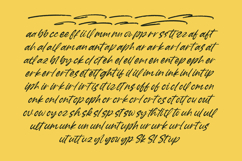 aa bb cc ee ff ii ll mm nn oo pp rr ss tt zz af aft
ah al all am an ant ap aph ar ark arl art as att
at azl bl ch ck cl ct eh el ell em en ent ep eph
er erk erl ert es et ett ght if il ill im in ink inl int ip
iph ir irk irl irt is it iz th ofs of oh ok ol oll om
onk onl ont op oph or ork orl ort os ot ott ou out
ov ow oy oz sh sk sl sp st sw sy th tk tt to un ul ull
ult um unk un unl unt uph ur urk url urt us
ut utt uz yl yo yp Sk Sl St up